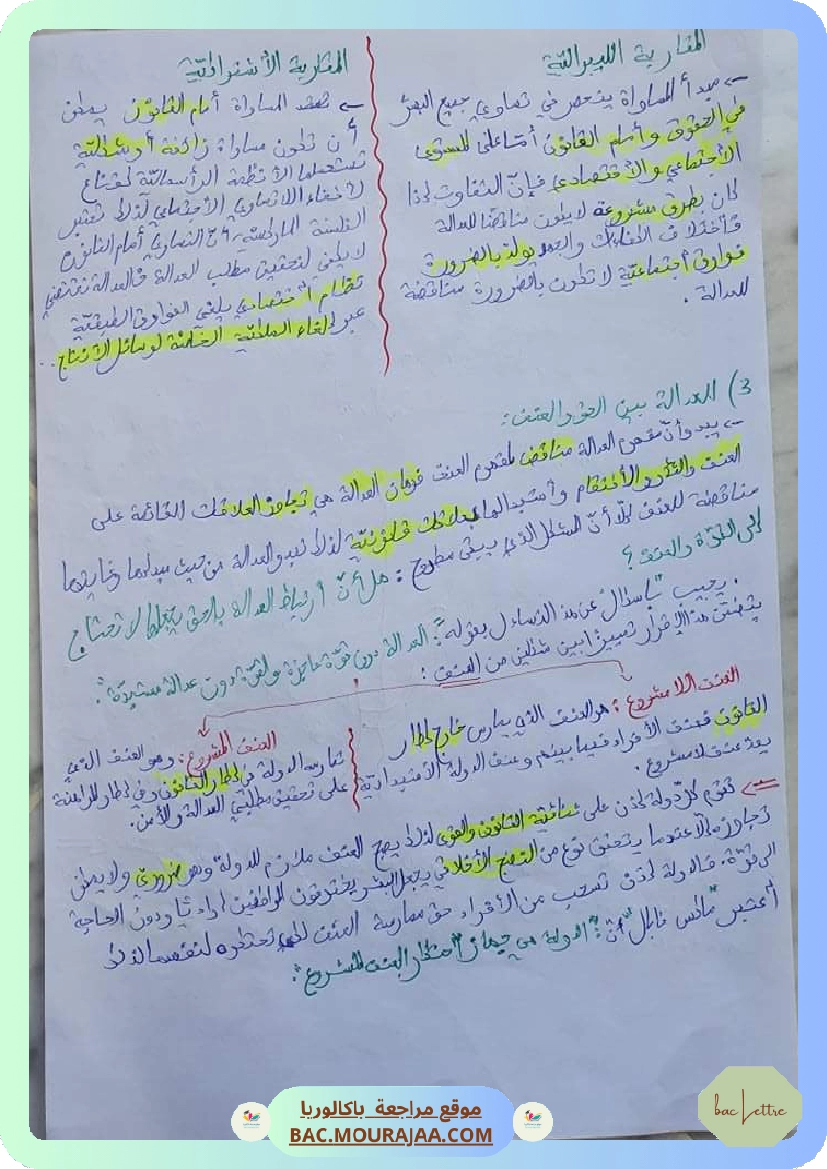 المقاربة الليبرالية
← مبدأ المساواة ينحصر في تساوي جميع البشر
في الحقوق وأمام القانون أما على المستوى
الاجتماعي والاقتصادي فإن التفاوت إذا
كان بطرق مشروعة لا يكون مناقضا للعدالة
فاختلاف الكفاءات والجهد يولد بالضرورة
فوارق اجتماعية لا تكون بالضرورة مناقضة
للعدالة .
المقاربة الاشتراكية
← تنتقد المساواة أمام القانون يمكن
أن تكون مساواة زائفة أو شكلية
تستعملها الأنظمة الرأسمالية كقناع
لاخفاء اللاتساوي الاجتماعي لذلك تعتبر
الفلسفة الماركسية أن التساوي أمام القانون
لا يكفي لتحقيق مطلب العدالة فالعدالة تقتضي
نظام اقتصادي يلغي الفوارق الطبقية
عبر إلغاء الملكية الخاصة لوسائل الإنتاج..
3) العدالة بين الحق والعنف:
← يبدو أن مفهوم العدالة مناقض لمفهوم العنف فرهان العدالة هي تجاوز العلاقات القائمة على
العنف والثأر والانتقام واستبدالها بعلاقات قانونية لذلك تبدو العدالة من حيث مبدئها وغاياتها
مناقضة للعنف إلا أن المشكل الذي يبقى مطروح : هل أن ارتباط العدالة بالحق يجعلها لا تحتاج
إلى القوة والعنف ؟
. يجيب "باسكال" عن هذا التساؤل بقوله: "العدالة دون قوة عاجزة والقوة دون عدالة مستبدة".
يتضمن هذا الإقرار تمييزا بين شكلين من العنف :
العنف اللامشروع : هو العنف الذي يمارس خارج إطار
القانون فعنف الأفراد فيما بينهم وعنف الدولة الاستبدادية
يعد عنف لامشروع .
العنف المشروع: وهو العنف الذي
تمارسه الدولة في إطار القانون وفي إطار المراهنة
على تحقيق مطلبي العدالة والأمن.
⇐ تقوم كل دولة إذن على ثنائية القانون والقوى لذلك يصبح العنف ملازم للدولة وهو ضروري ولا يمكن
تجاوزه إلا عندما يتحقق نوع من النضج الأخلاقي يجعل البشر يحترمون المواطنين إراديا ودون الحاجة
الى قوة. فالدولة إذن تسحب من الأفراد حق ممارسة العنف لكي تحتكره لنفسها لذلك
أعتبر "ماكس فايبر" أن: "الدولة هي جهاز احتكار العنف المشروع".
موقع مراجعة باكالوريا
BAC.MOURAJAA.COM
bac Lettre